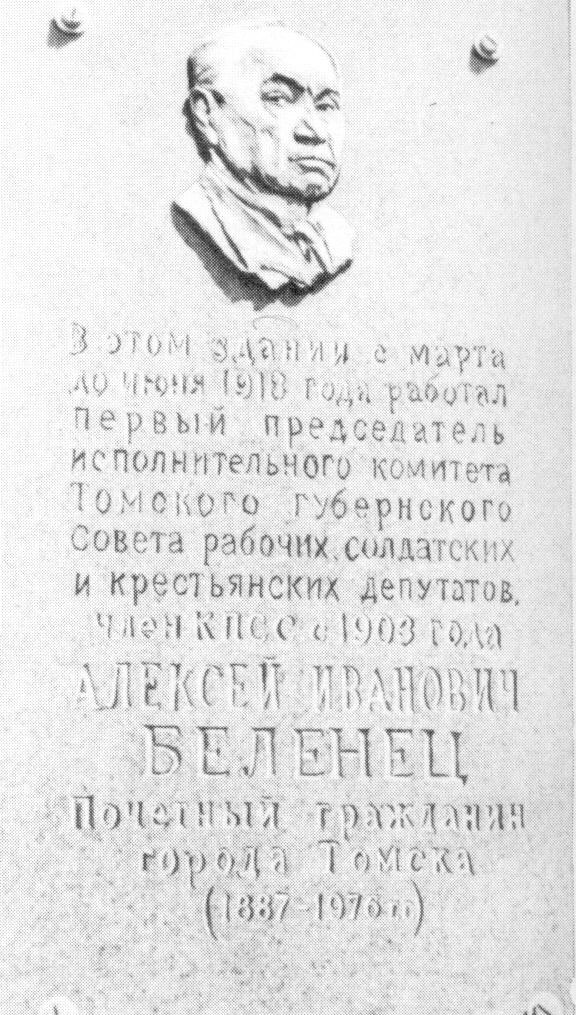 В этом здании с марта
до июня 1918 года работал
первый председатель
исполнительного комитета
Томского губернского
Совета рабочих, солдатских
и крестьянских депутатов,
член КПСС с 1903 года
АЛЕКСЕЙ ИВАНОВИЧ
БЕЛЕНЕЦ
Почетный гражданин
города Томска
(1887-1976 гг)